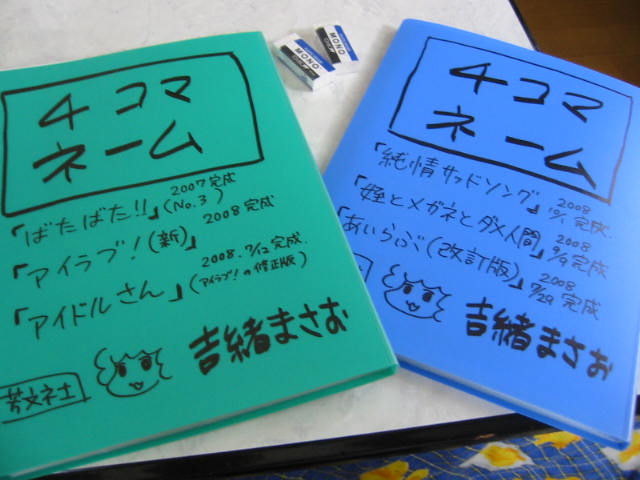 4コマ
ネーム
「ばたばた!!」2007完成
(No.3)
「アイラブ!(新)」2008完成
「アイドルさん」2008.7/12完成.
(アイラブ!の修正版)
芳文社
吉緒まさお
MONO
MONO
4コマ
ネーム
「純情サッドソング」2008
10/1完成.
「姪とメガネとダメ人間」2008
9/9完成
「あいらぶ(改訂版)」2008
9/29完成
吉緒まさお